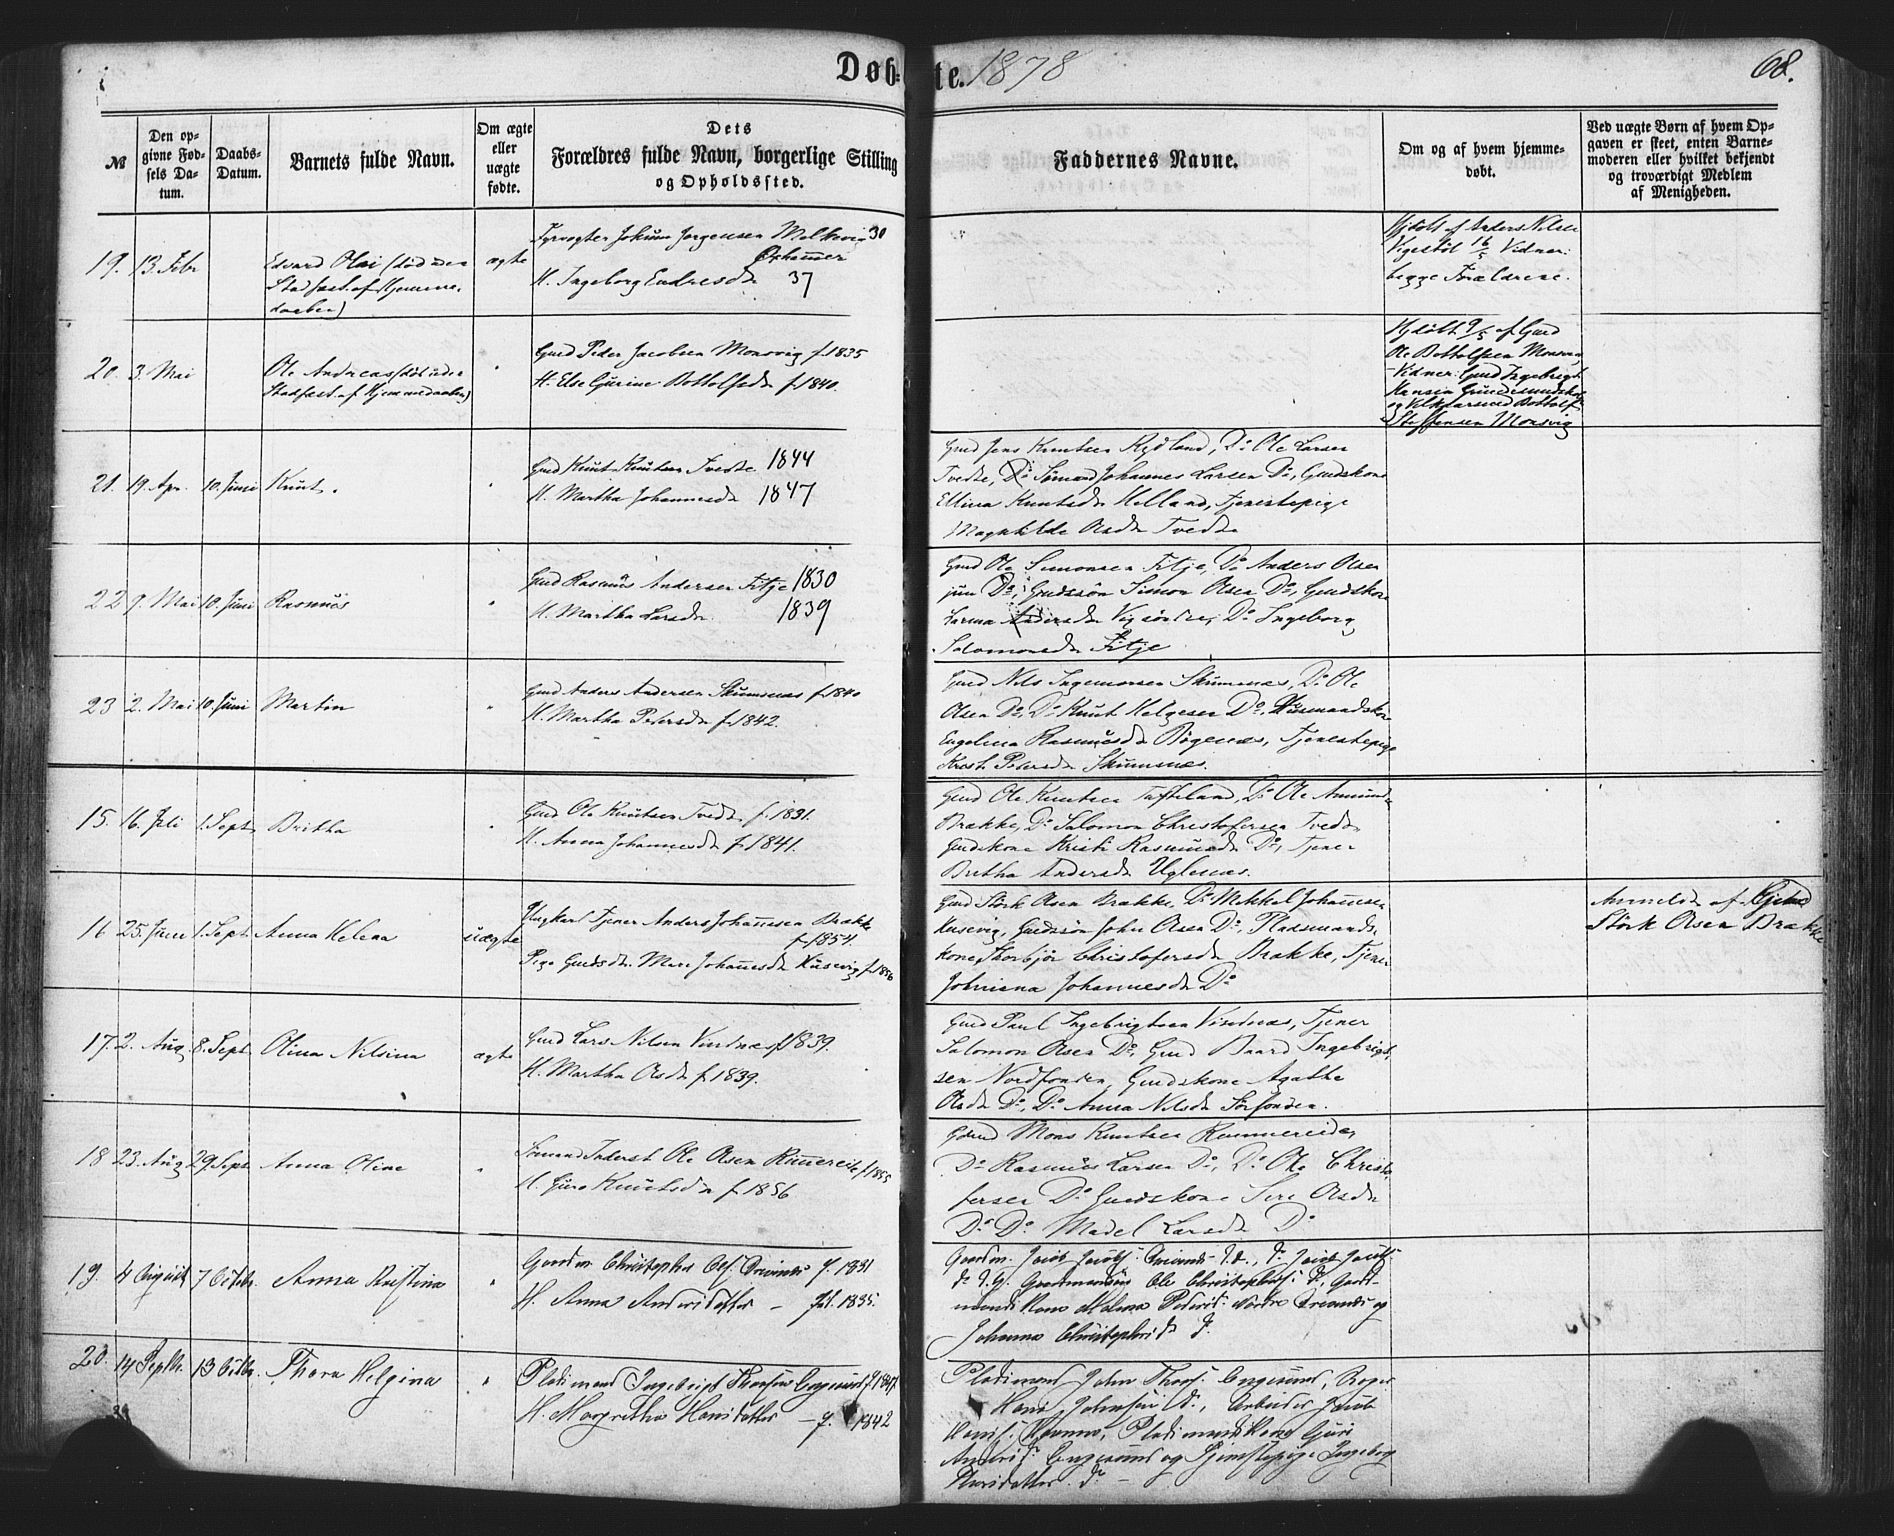 Døbte. 1878
68.
№
Den opgivne Fødsels Datum.
Daabs-Datum.
Barnets fulde Navn.
Om ægte eller uægte fødte.
Dets Forældres fulde Navn, borgerlige Stilling og Opholdssted.
Faddernes Navne.
Om og af hvem hjemmedøbt.
Ved uægte Børn af hvem Opgaven er skeet, enten Barnemoderen eller hvilket bekjendt og troværdigt Medlem af Menigheden.
19. 13. Febr
Edvard Olai (død uden
Stadfæst. af Hjemmedaaben)
ægte
Fyrvogter Jokum Jørgensen Melkevig 30
H. Ingeborg Endresdr 37
Hjdøbt af Anders Nilsen
Vigestøl 16/5 Vidner:
begge Forældrene.
20. 3. Mai
Ole Andreas (død uden
Stadfæst. af Hjemmedaaben)
"
Gmd Peder Jacobsen Monsvig f. 1835
H. Else Gurine Bottolfsdr f. 1840.
Hjdøbt 9/5 af Gmd
Ole Bottolfsen Monsvig
Vidner: Gmd Ingebrigt
Steffensen Monsvig
21. 19. Apr. 10. Juni Knut.
"
Gmd Knut Knutsen Tvedte 1844
H. Martha Johannesdr 1847
Gmd Jens Knutsen Rydland, Do Ole Larsen
Tvedte, Do Sømand Johannes Larsen Do, Gmdskone
Ellina Knutsdr Helland, Tjenestepige
Magthilde Olsdr Tvedte
22 9. Mai 10. Juni Rasmus
"
Gmd Rasmus Andersen Fitje 1830
H. Martha Larsdr. 1839
Gmd Ole Simonsen Fitje, Do Anders Olsen
jun Do, Gmdssøn Simon Olsen Do, Gmdskone
Andersdr Do Ingeborg
Salomonsdr Fitje
23 2. Mai 10. Juni Martin
"
Gmd Anders Andersen Skumsnæs f. 1840
H. Martha Pedersdr f. 1842.
Gmd Nils Ingemorsen Skumsnæs, Do Ole
Olsen Do, Do Knut Helgesen Do, Husmandskone
Engelina Rasmusdr Bøgenæs, Tjenestepige
Krist. Pedersdr Skumsnæs.
15. 16. Juli 1. Sept Britha
"
Gmd Ole Knutsen Tvedt f. 1831.
H. Anna Johannesdr f. 1841.
Gmd Ole Knutsen Tufteland, Do Ole Amunds.
Brække, Do Salomon Christofersen Tvedt
Gmdskone Kristi Rasmusdr Do, Tjener
Bretha Andersdr Uglenæs.
16 25. Juni 1. Sept Anna Helena
uægte
Ungkarl Tjener Anders Johannesen Brække
f. 1854.
Pige Gmdsdr. Mari Johannesdr Kusevig f. 1856
Gmd Størk Olsen Brække, Do Mekkel Johannesen
Kusevig, Gmdssøn John Olsen Do, Pladsmandskone
Thorbjør Christofersdr Brække, Tjener
Johnena Johannesdr Do
Anmeldt af Gmd
Størk Olsen Brække
17. 2. Aug 8. Sept. Olina Nilsina
ægte
Gmd Lars Nilsen Vindnæs f. 1839.
H. Martha Olsdr f. 1839.
Gmd Paul Ingebrigtsen Vindnæs, Tjener
Salomon Olsen Do, Gmd Baard Ingebrigtsen
Nordfonden, Gmdskone Agathe
Olsdr Do, Do Anna Nilsdr Sørfonden.
18 23. Aug 29. Sept Anna Oline
"
Sømand Inderst Ole Olsen Rimereide f. 1855
H. Guro Knutsdr f. 1856
Gmd Mons Knutsen Rimmereide,
Do Rasmus Larsen Do, Do Ole Christofersen
Do Gmdskone Siri Olsdr
Do Do Madel Larsdr Do
19. 4 August 7 Octobr. Anna Kristina
"
Gaardm. Christopher Ols. f. 1831
H. Anna Andersdatter – fd. 1835.
Gaardm. Jacob Jacobs. Do Jacob Jacobs.
Gaardmandssøn Ole Christophers. Do, Gaardmandskone
Malena Pedersd. Nordre og
Johanna Christophersdr Do.
20. 14 Septbr. 13 Octbr. Thora Helgina
"
Pladsmand Ingebrigt Thorsen Engesund f. 1847.
H. Margretha Hansdatter – f. 1842
Pladsmand John Thors. Engesund, Roger
Hans Johnsen Do, Arbeider Jacob
Hans. Pladsmandskone Guri
Andersd. Engesund og Tjenestepige Ingeborg
Thorsdatter Do –